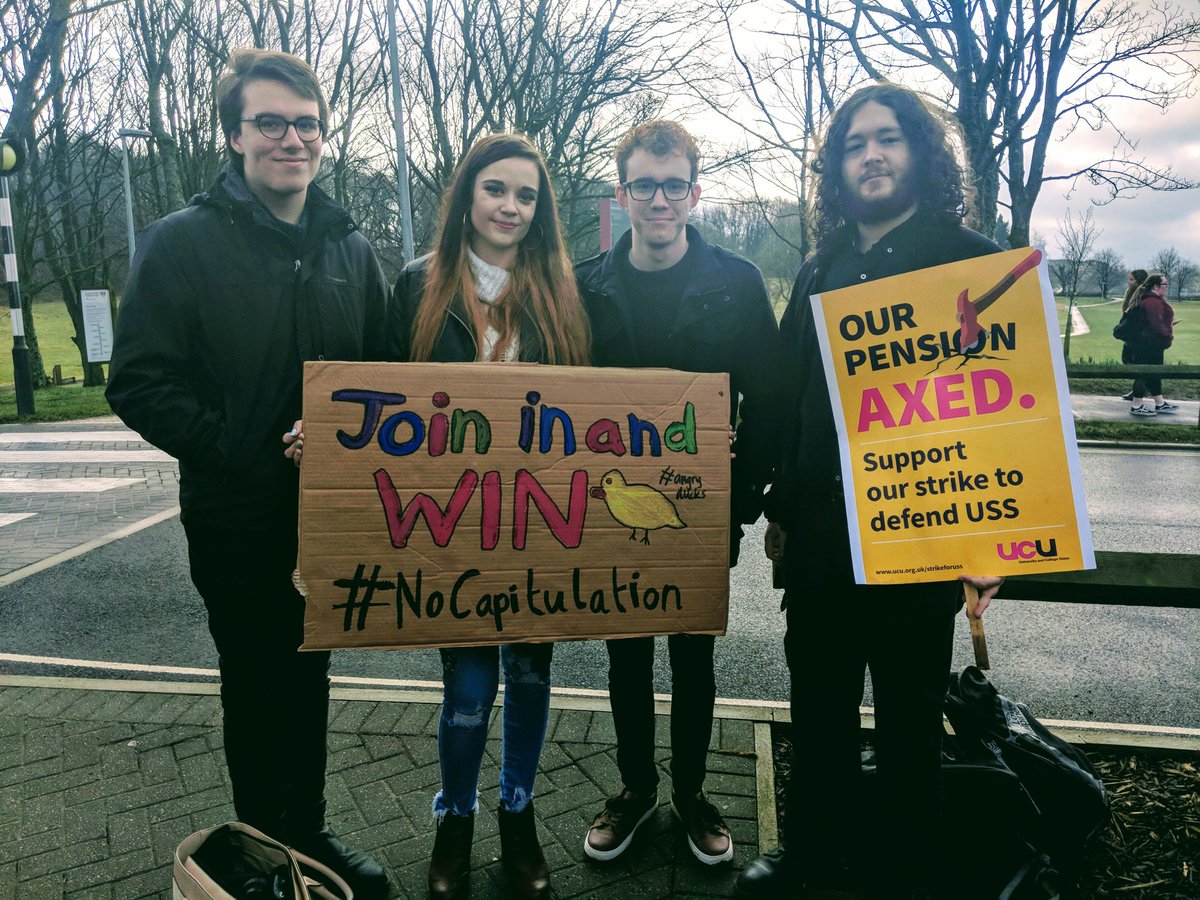 Join in and
WIN
#angry
ducks
#NoCapitulation
OUR
PENSION
AXED.
Support
our strike to
defend USS
www.ucu.org.uk/strikeforuss
UCU
University and College Union